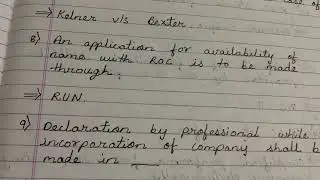 ⇒ Kelner v/s Bexter
8) An application for availability of
name with ROC is to be made
through.
⇒ RUN.
9) Declaration by professional while
incorporation of company shall b
made in ____.